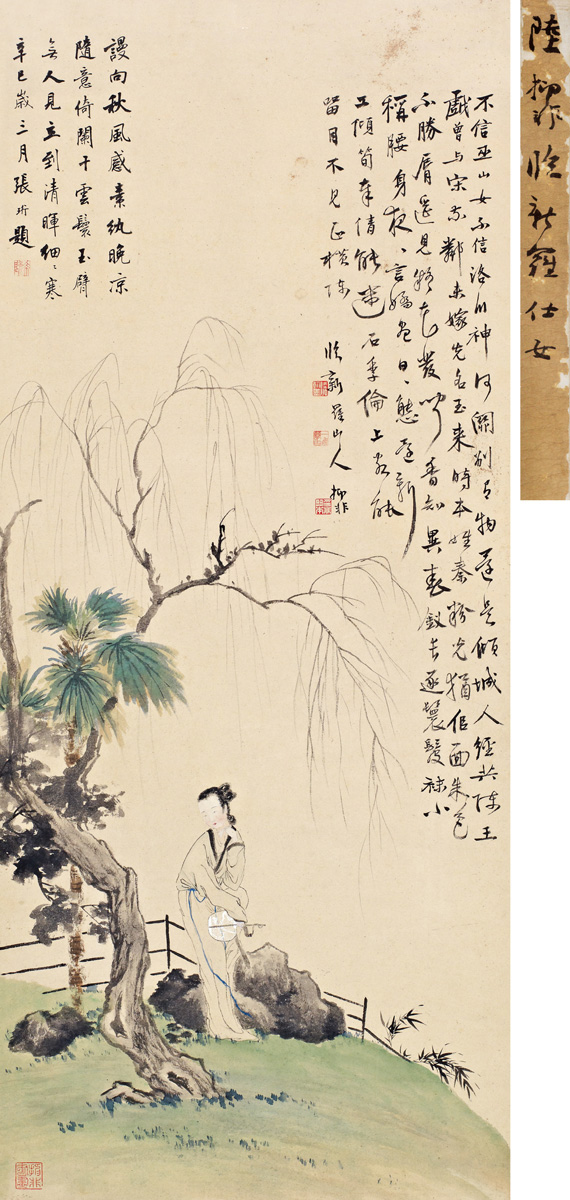 陸抑非臨新羅仕女
不信巫山女不信洛川神何關別有物還是傾城人經共陳王
戲曾與宋家鄰未嫁先名玉來時本姓秦粉光猶似面朱色
不勝脣遙見疑花發聞香知異春釵長逐鬟髮袜小
稱腰身夜〻言嬌盡日〻態還新
工傾荀奉倩能迷石季倫上客能
留目不見正橫陳
臨新羅山人 抑非
謾向秋風感素紈晚涼
隨意倚闌干雲鬟玉臂
無人見立到清暉細〻寒
辛巳歲三月張珩題